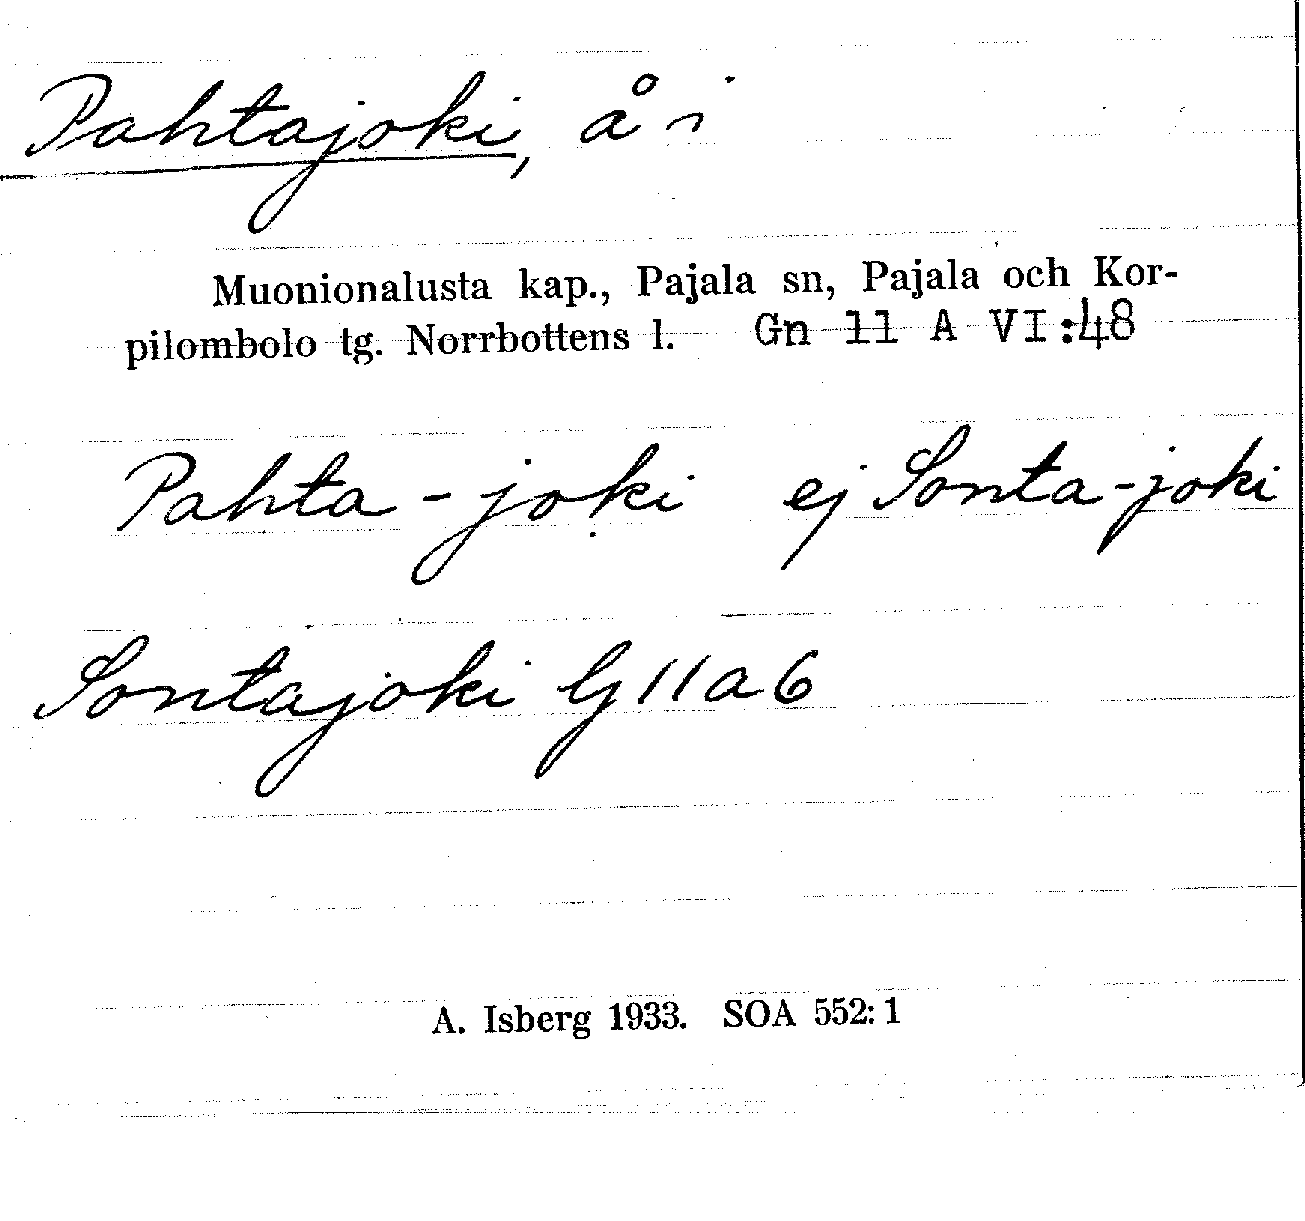 Pahtajoki, å i
Muonionalusta kap., Pajala sn, Pajala och Kor-
pilombolo tg. Norrbottens l. Gn 11 A VI:48
Pahta-joki ej Sonta-joki
Sontajoki G 11 a 6
A. Isberg 1933. SOA 552:1